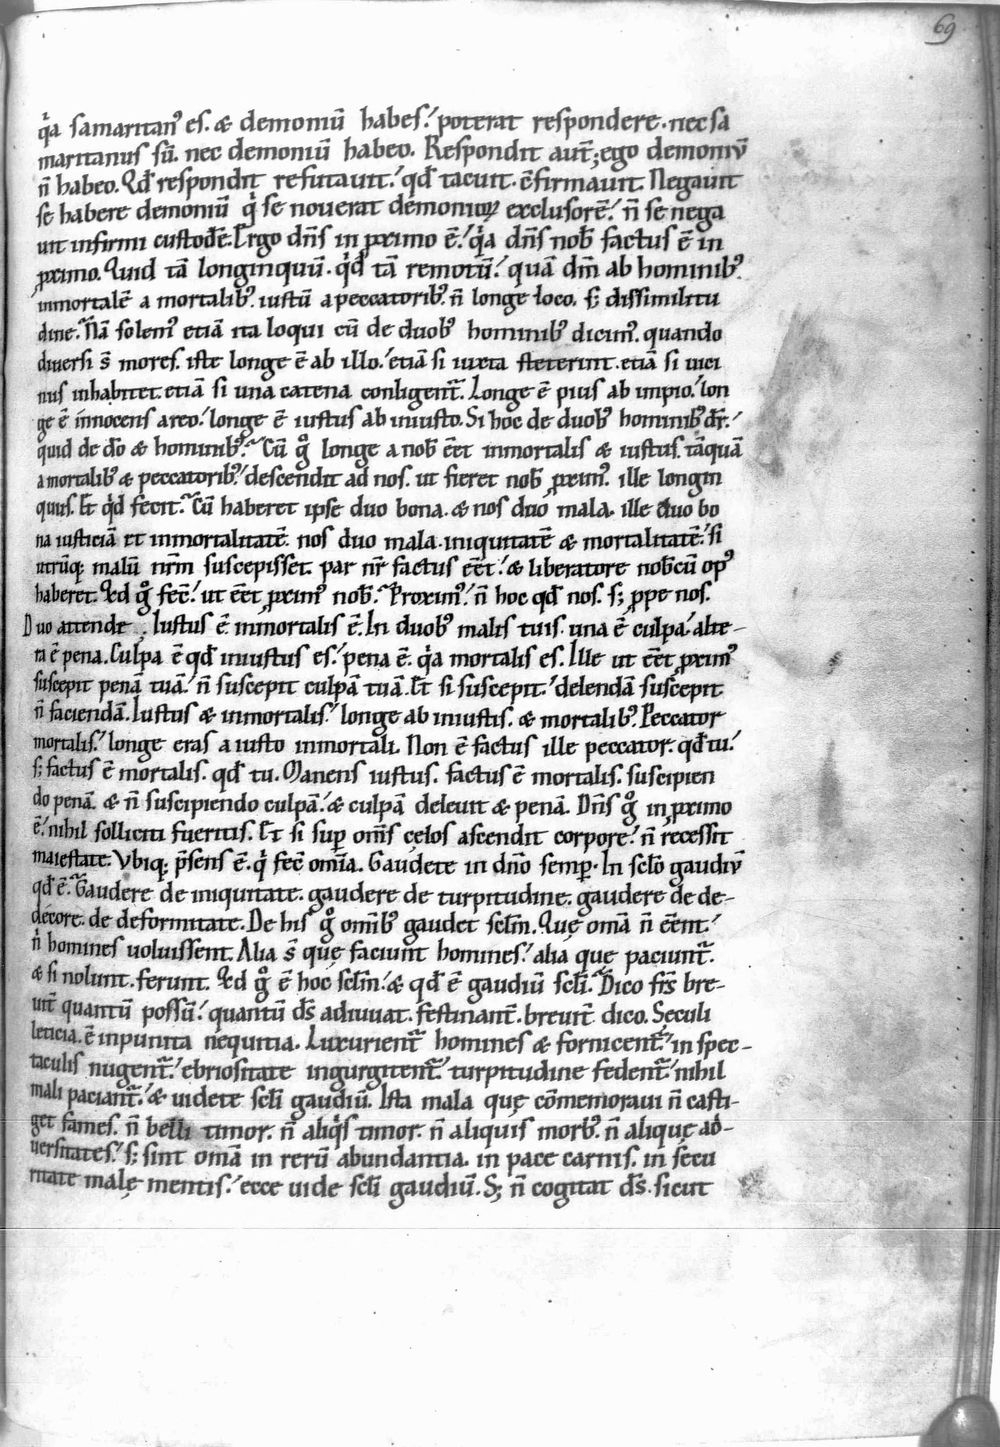 69
q̇a samaritan᾽ es. & demoniū habes.᾽ poterat respondere. nec sa
maritanus sū. nec demoniū habeo. Respondit aut̄; ego demoniū
n̄ habeo. Qd̄ respondit refutauit.᾽ qd̄ tacuit. c̄firmauit. Negauit
se habere demoniū q̇ se nouerat demonioꝝ exclusorē.᾽ n̄ se nega
uit infirmi custodē. Ergo dn̄s in ꝓximo ē.᾽ q̇a dn̄s nob̄ factus ē in
ꝓximo. Quid tā longinquū. q̇d tā remotū.᾽ quā dm̄ ab hominib᾽.
inmortalē a mortalib᾽. iustū a peccatorib᾽. n̄ longe loco. s; dissimilitu
dine. Nā solem᾽ etiā ita loqui cū de duob᾽ hominib᾽ dicim᾽. quando
diuersi s̄ mores. iste longe ē ab illo.᾽ etiā si iuxta steterint. etiā si uici
nus inhabitet. etiā si una catena conligent᷑. Longe ē pius ab impio.᾽ lon
ge ē innocens a reo.᾽ longe ē iustus ab iniusto. Si hoc de duob᾽ hominib᾽ dr̄.᾽
quid de dō & hominib᾽. Cū gͦ longe a nob̄ eēt inmortalis & iustus. tāquā
a mortalib᾽ & peccatorib᾽.᾽ descendit ad nos. ut fieret nob̄ ꝓxim᾽. ille longin
quus. Et q̇d fecit. Cū haberet ipse duo bona. & nos duo mala. ille duo bo
na iusticiā et inmortalitatē. nos duo mala. iniquitatē & mortalitatē.᾽ si
utrūq; malū nr̄m suscepisset. par nr̄ factus eēt.᾽ & liberatore nob̄cū op᾽
haberet. Qd gͦ fec̄.᾽ ut eēt ꝓxim᾽ nob̄. Proxim᾽.᾽ n̄ hoc qd̄ nos. s; ꝓpe nos.
Duo attende. Iustus ē. inmortalis ē. In duob᾽ malis tuis. una ē culpa.᾽ alte-
ra ē pena. Culpa ē qd̄ iniustus es.᾽ pena ē. q̇a mortalis es. Ille ut eēt ꝓxim᾽
suscepit penā tuā.᾽ n̄ suscepit culpā tuā. Et si suscepit.᾽ delendā suscepit
n̄ faciendā. Iustus & inmortalis.᾽ longe ab iniustis. & mortalib᾽. Peccator
mortalis.᾽ longe eras a iusto inmortali. Non ē factus ille peccator. qd̄ tu.᾽
s; factus ē mortalis. qd̄ tu. Manens iustus. factus ē mortalis. suscipien
do penā. & n̄ suscipiendo culpā.᾽ & culpā deleuit & penā. Dn̄s gͦ in ꝓximo
ē.᾽ nihil solliciti fueritis. Et si suꝑ om̄s cęlos ascendit corpore.᾽ n̄ recessit
maiestate. Vbiq; p̄sens ē. q̇ fec̄ om̄ia. Gaudete in dn̄o semꝑ. In sclō gaudiū
qd̄ ē. Gaudere de iniquitate. gaudere de turpitudine. gaudere de de-
decore. de deformitate. De his gͦ omīb᾽ gaudet sclm̄. Quę omā n̄ eēnt.᾽
n̄ homines uoluissent. Alia s̄ quę faciunt homines.᾽ alia quę paciunt᷑.
& si nolunt. ferunt. Qd gͦ ē hoc sclm̄.᾽ & qd̄ ē gaudiū scli̅. Dico frs̄ bre-
uit̄ quantū possū.᾽ quantū ds̄ adiuuat. festinant̄. breuit̄ dico. Seculi
leticia. ē inpunita nequitia. Luxurient᷑ homines & fornicent᷑.᾽ in spec-
taculis nugent᷑.᾽ ebriositate ingurgitent᷑.᾽ turpitudine fedent᷑.᾽ nihil
mali paciant᷑.᾽ & uidete scli̅ gaudiū. Ista mala quę cōmemoraui n̄ casti-
get fames. n̄ belli timor. n̄ aliq̇s timor. n̄ aliquis morb᾽. n̄ aliquę ad-
uersitates.᾽ s; sint omā in rerū abundantia. in pace carnis. in secu
ritate malę mentis.᾽ ecce uide scli̅ gaudiū. S; n̄ cogitat ds̄. sicut